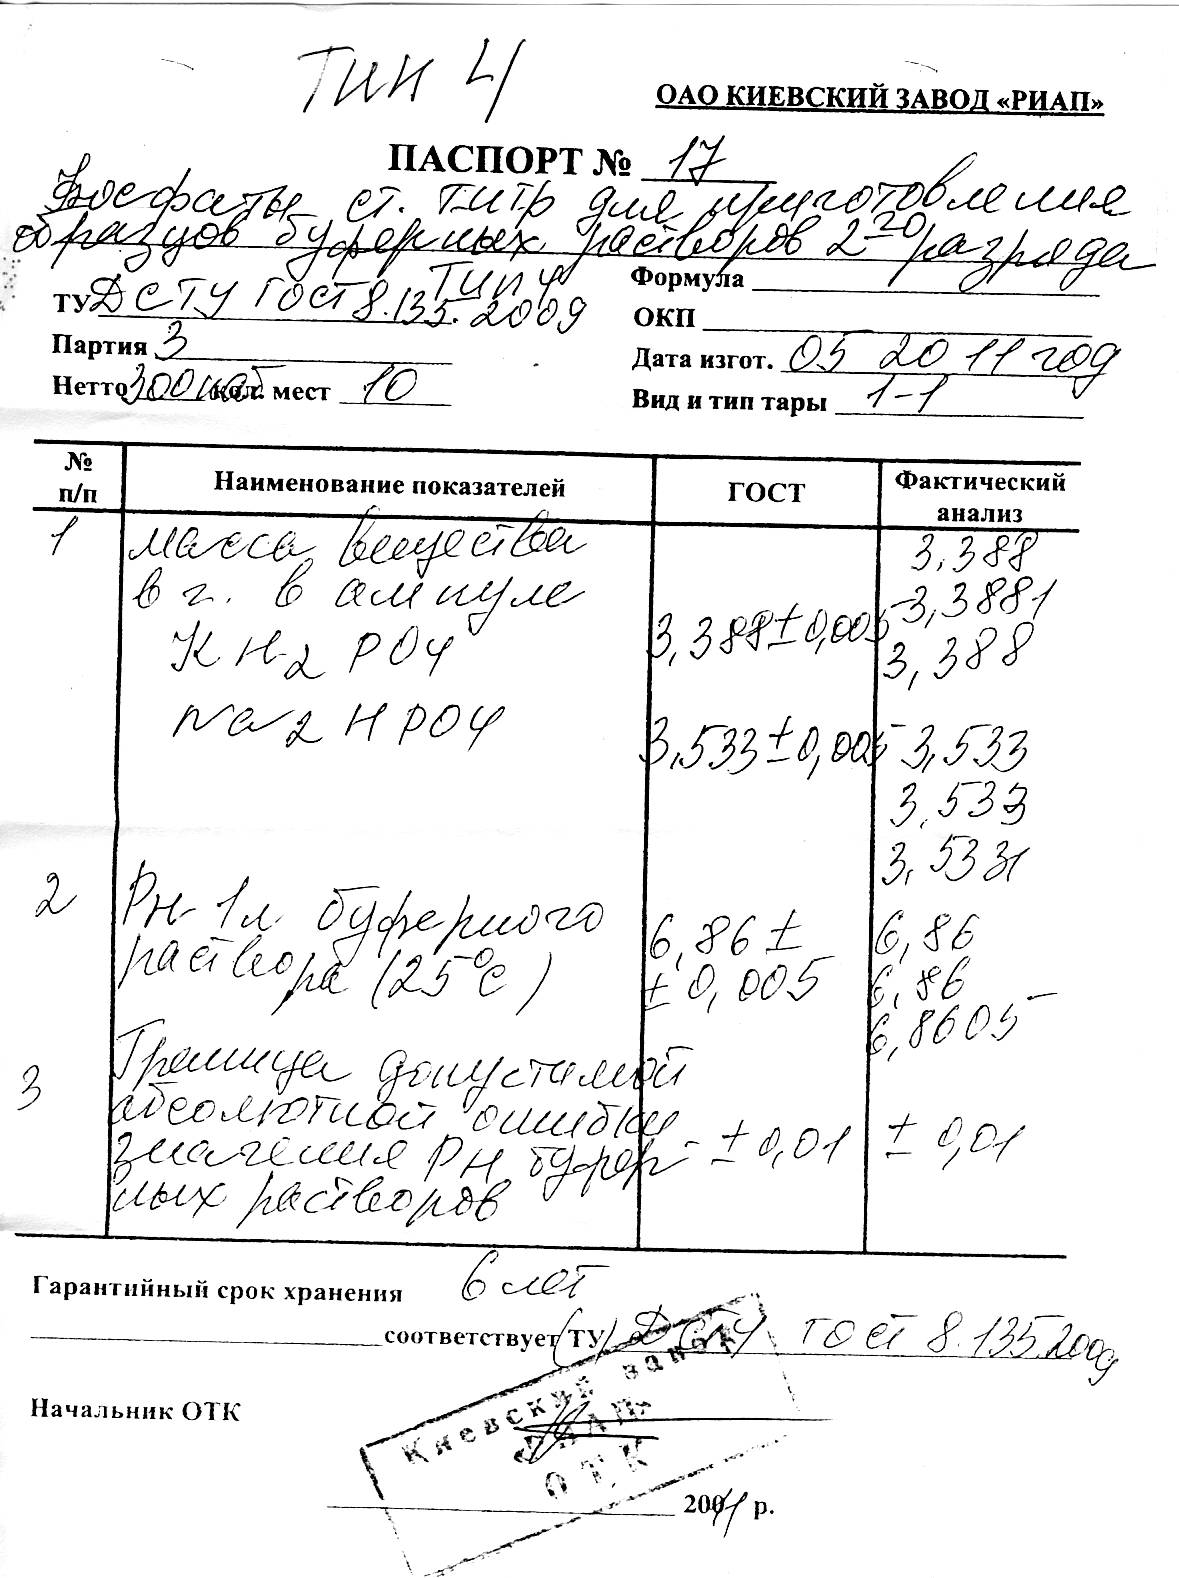 Тип 4
ОАО КИЕВСКИЙ ЗАВОД «РИАП»
ПАСПОРТ № 17
Фосфаты ст. титр для приготовления
образцов буферных растворов 2-го разряда
Тип 4
ТУ ДСТУ ГОСТ 8.135.2009
Формула
ОКП
Партия 3
Дата изгот. 05 2011 год
Нетто 300 наб кол. мест 10
Вид и тип тары 1-1
№ п/п
Наименование показателей
ГОСТ
Фактический анализ
1
масса вещества
в г. в ампуле
KH2PO4
3,388±0,005
3,388
3,3881
3,388
Na2HPO4
3,533±0,005
3,533
3,533
3,5331
2
PH 1л буферного
раствора (25°с)
6,86 ±
± 0,005
6,86
6,86
6,8605
3
Граница допустимой
абсолютной ошибки
значения PH буфер-
ных растворов
± 0,01
± 0,01
Гарантийный срок хранения 6 лет
соответствует (ТУ) ДСТУ ГОСТ 8.135.2009
Начальник ОТК
Киевский завод
«РИАП»
ОТК
р.